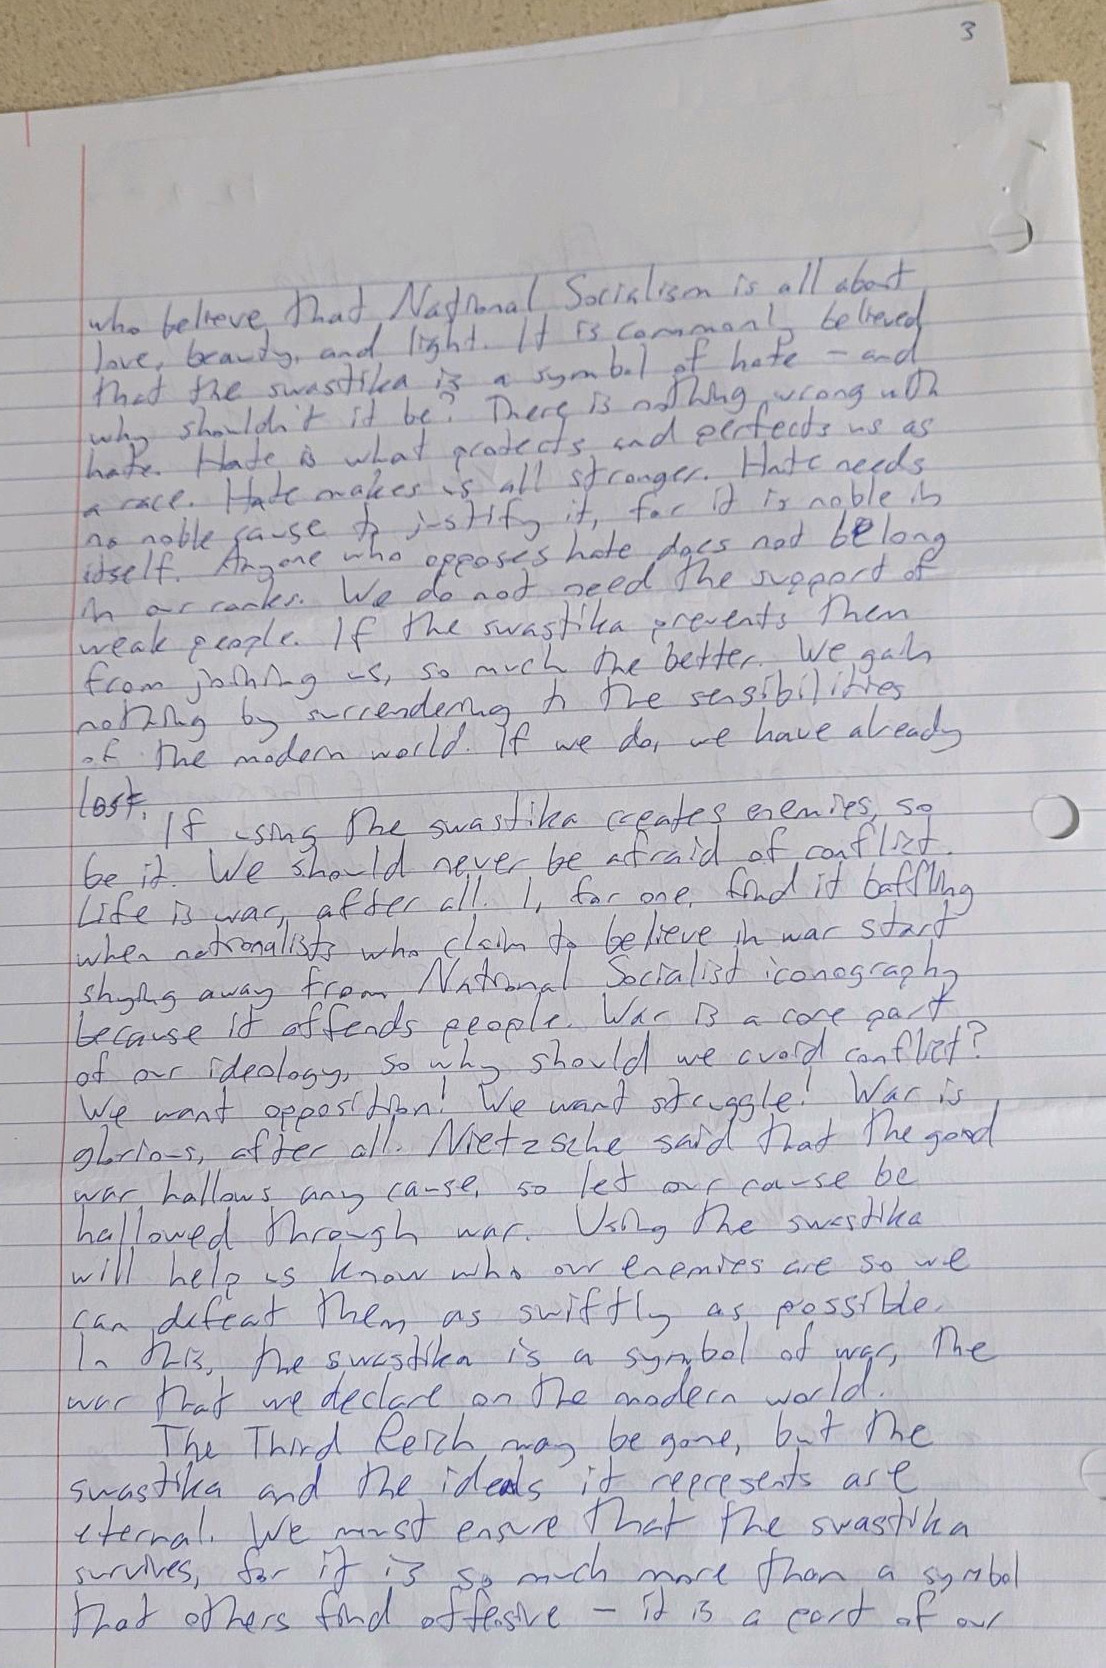 3
who believe that National Socialism is all about
love, beauty, and light. It is commonly believed
that the swastika is a symbol of hate – and
why shouldn't it be? There is nothing wrong with
hate. Hate is what protects and perfects us as
a race. Hate makes us all stronger. Hate needs
no noble cause to justify it, for it is noble in
itself. Anyone who opposes hate does not belong
in our ranks. We do not need the support of
weak people. If the swastika prevents them
from joining us, so much the better. We gain
nothing by surrendering to the sensibilities
of the modern world. If we do, we have already
lost.
If using the swastika creates enemies, so
be it. We should never be afraid of conflict.
Life is war, after all. I, for one, find it baffling
when nationalists who claim to believe in war start
shying away from National Socialist iconography
because it offends people. War is a core part
of our ideology, so why should we avoid conflict?
We want opposition! We want struggle! War is
glorious, after all. Nietzsche said that the good
war hallows any cause, so let our cause be
hallowed through war. Using the swastika
will help us know who our enemies are so we
can defeat them as swiftly as possible.
In this, the swastika is a symbol of war, the
war that we declare on the modern world.
The Third Reich may be gone, but the
swastika and the ideals it represents are
eternal. We must ensure that the swastika
survives, for it is so much more than a symbol
that others find offensive – it is a part of our